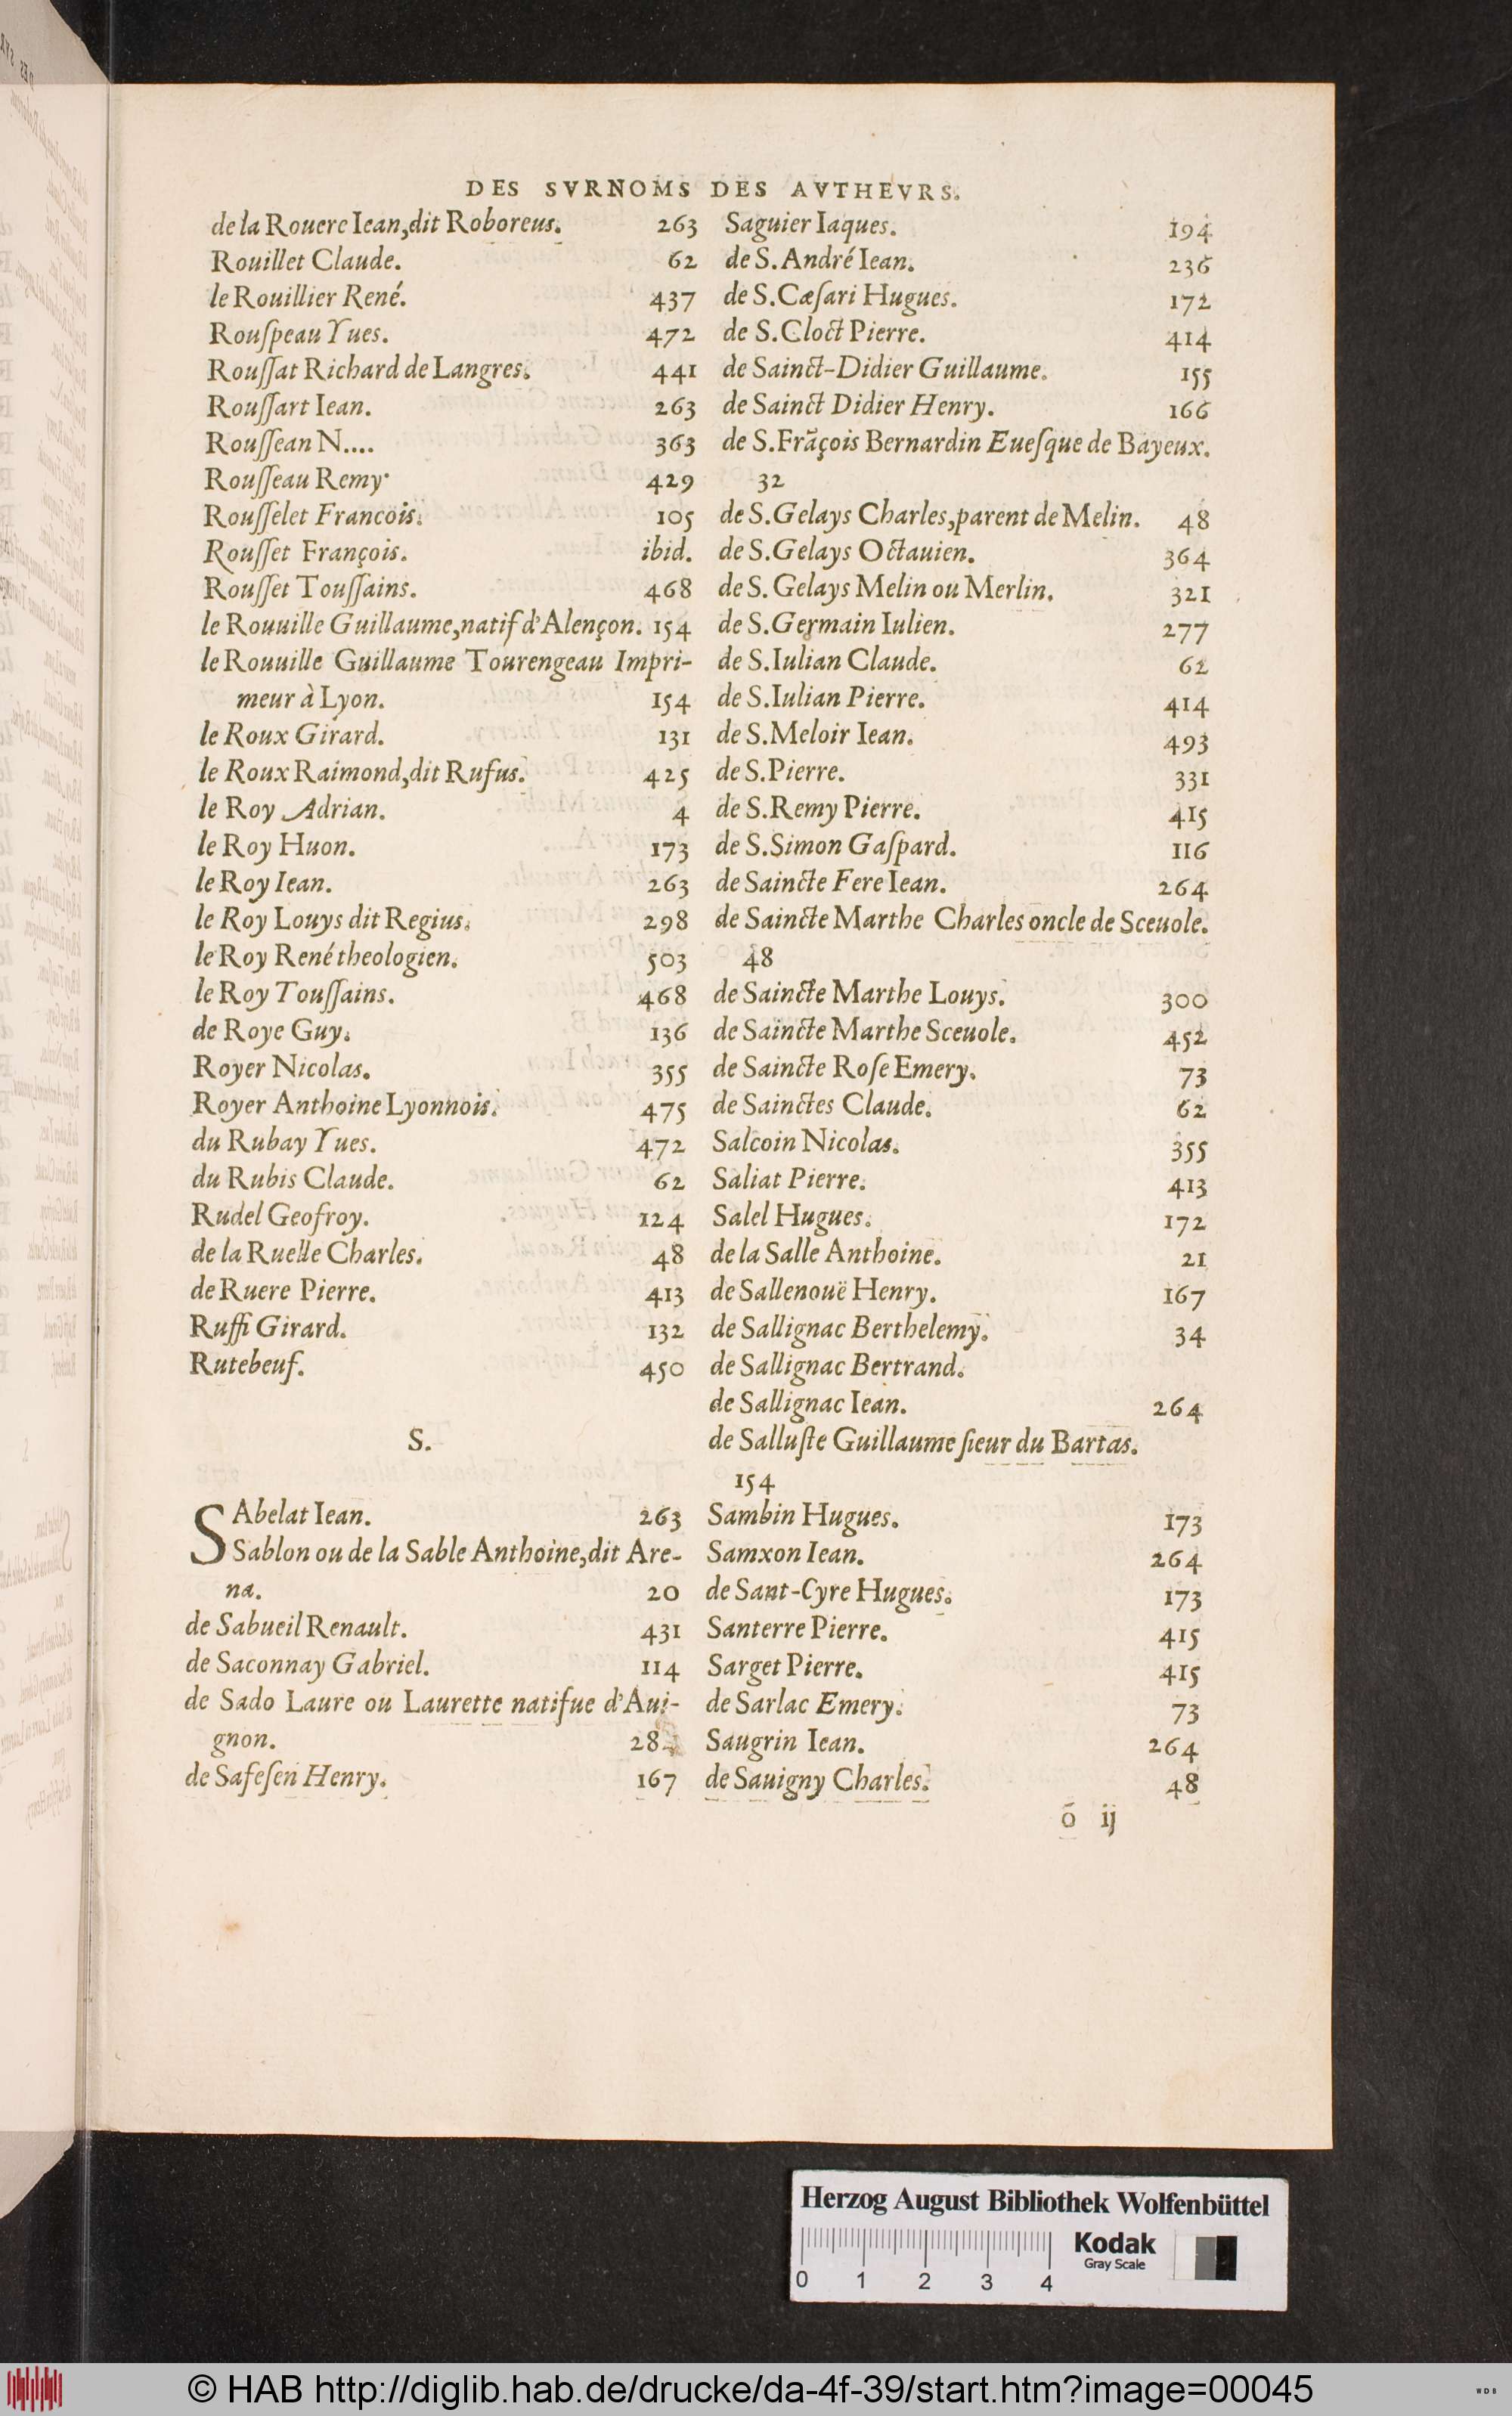 DES SVRNOMS DES AVTHEVRS.
de la Rouere Iean, dit Roboreus. 263
Rouillet Claude. 62
le Rouillier René. 437
Rouſpeau Yues. 472
Rouſſat Richard de Langres. 441
Rouſſart Iean. 263
Rouſſean N.... 363
Rouſſeau Remy. 429
Rouſſelet Francois. 105
Rouſſet François. ibid.
Rouſſet Touſſains. 468
le Rouuille Guillaume, natif d'Alençon. 154
le Rouuille Guillaume Tourengeau Impri-
meur à Lyon. 154
le Roux Girard. 131
le Roux Raimond, dit Rufus. 425
le Roy Adrian. 4
le Roy Huon. 173
le Roy Iean. 263
le Roy Louys dit Regius. 298
le Roy René theologien. 503
le Roy Touſſains. 468
de Roye Guy. 136
Royer Nicolas. 355
Royer Anthoine Lyonnois. 475
du Rubay Yues. 472
du Rubis Claude. 62
Rudel Geofroy. 124
de la Ruelle Charles. 48
de Ruere Pierre. 413
Ruffi Girard. 132
Rutebeuf. 450
S.
SAbelat Iean. 263
Sablon ou de la Sable Anthoine, dit Are-
na. 20
de Sabueil Renault. 431
de Saconnay Gabriel. 114
de Sado Laure ou Laurette natifue d'Aui-
gnon. 28
de Safeſen Henry. 167
Saguier Iaques. 194
de S. André Iean. 236
de S. Cæſari Hugues. 172
de S. Cloct Pierre. 414
de Sainct-Didier Guillaume. 155
de Sainct Didier Henry. 166
de S. Frãçois Bernardin Eueſque de Bayeux.
32
de S. Gelays Charles, parent de Melin. 48
de S. Gelays Octauien. 364
de S. Gelays Melin ou Merlin. 321
de S. Germain Iulien. 277
de S. Iulian Claude. 62
de S. Iulian Pierre. 414
de S. Meloir Iean. 493
de S. Pierre. 331
de S. Remy Pierre. 415
de S. Simon Gaſpard. 116
de Saincte Fere Iean. 264
de Saincte Marthe Charles oncle de Sceuole.
48
de Saincte Marthe Louys. 300
de Saincte Marthe Sceuole. 452
de Saincte Roſe Emery. 73
de Sainctes Claude. 62
Salcoin Nicolas. 355
Saliat Pierre. 413
Salel Hugues. 172
de la Salle Anthoine. 21
de Sallenouë Henry. 167
de Sallignac Berthelemy. 34
de Sallignac Bertrand.
de Sallignac Iean. 264
de Salluſte Guillaume ſieur du Bartas.
154
Sambin Hugues. 173
Samxon Iean. 264
de Sant-Cyre Hugues. 173
Santerre Pierre. 415
Sarget Pierre. 415
de Sarlac Emery. 73
Saugrin Iean. 264
de Sauigny Charles. 48
õ ij
Herzog August Bibliothek Wolfenbüttel
Kodak
Gray Scale
0 1 2 3 4
© HAB http://diglib.hab.de/drucke/da-4f-39/start.htm?image=00045
WDB